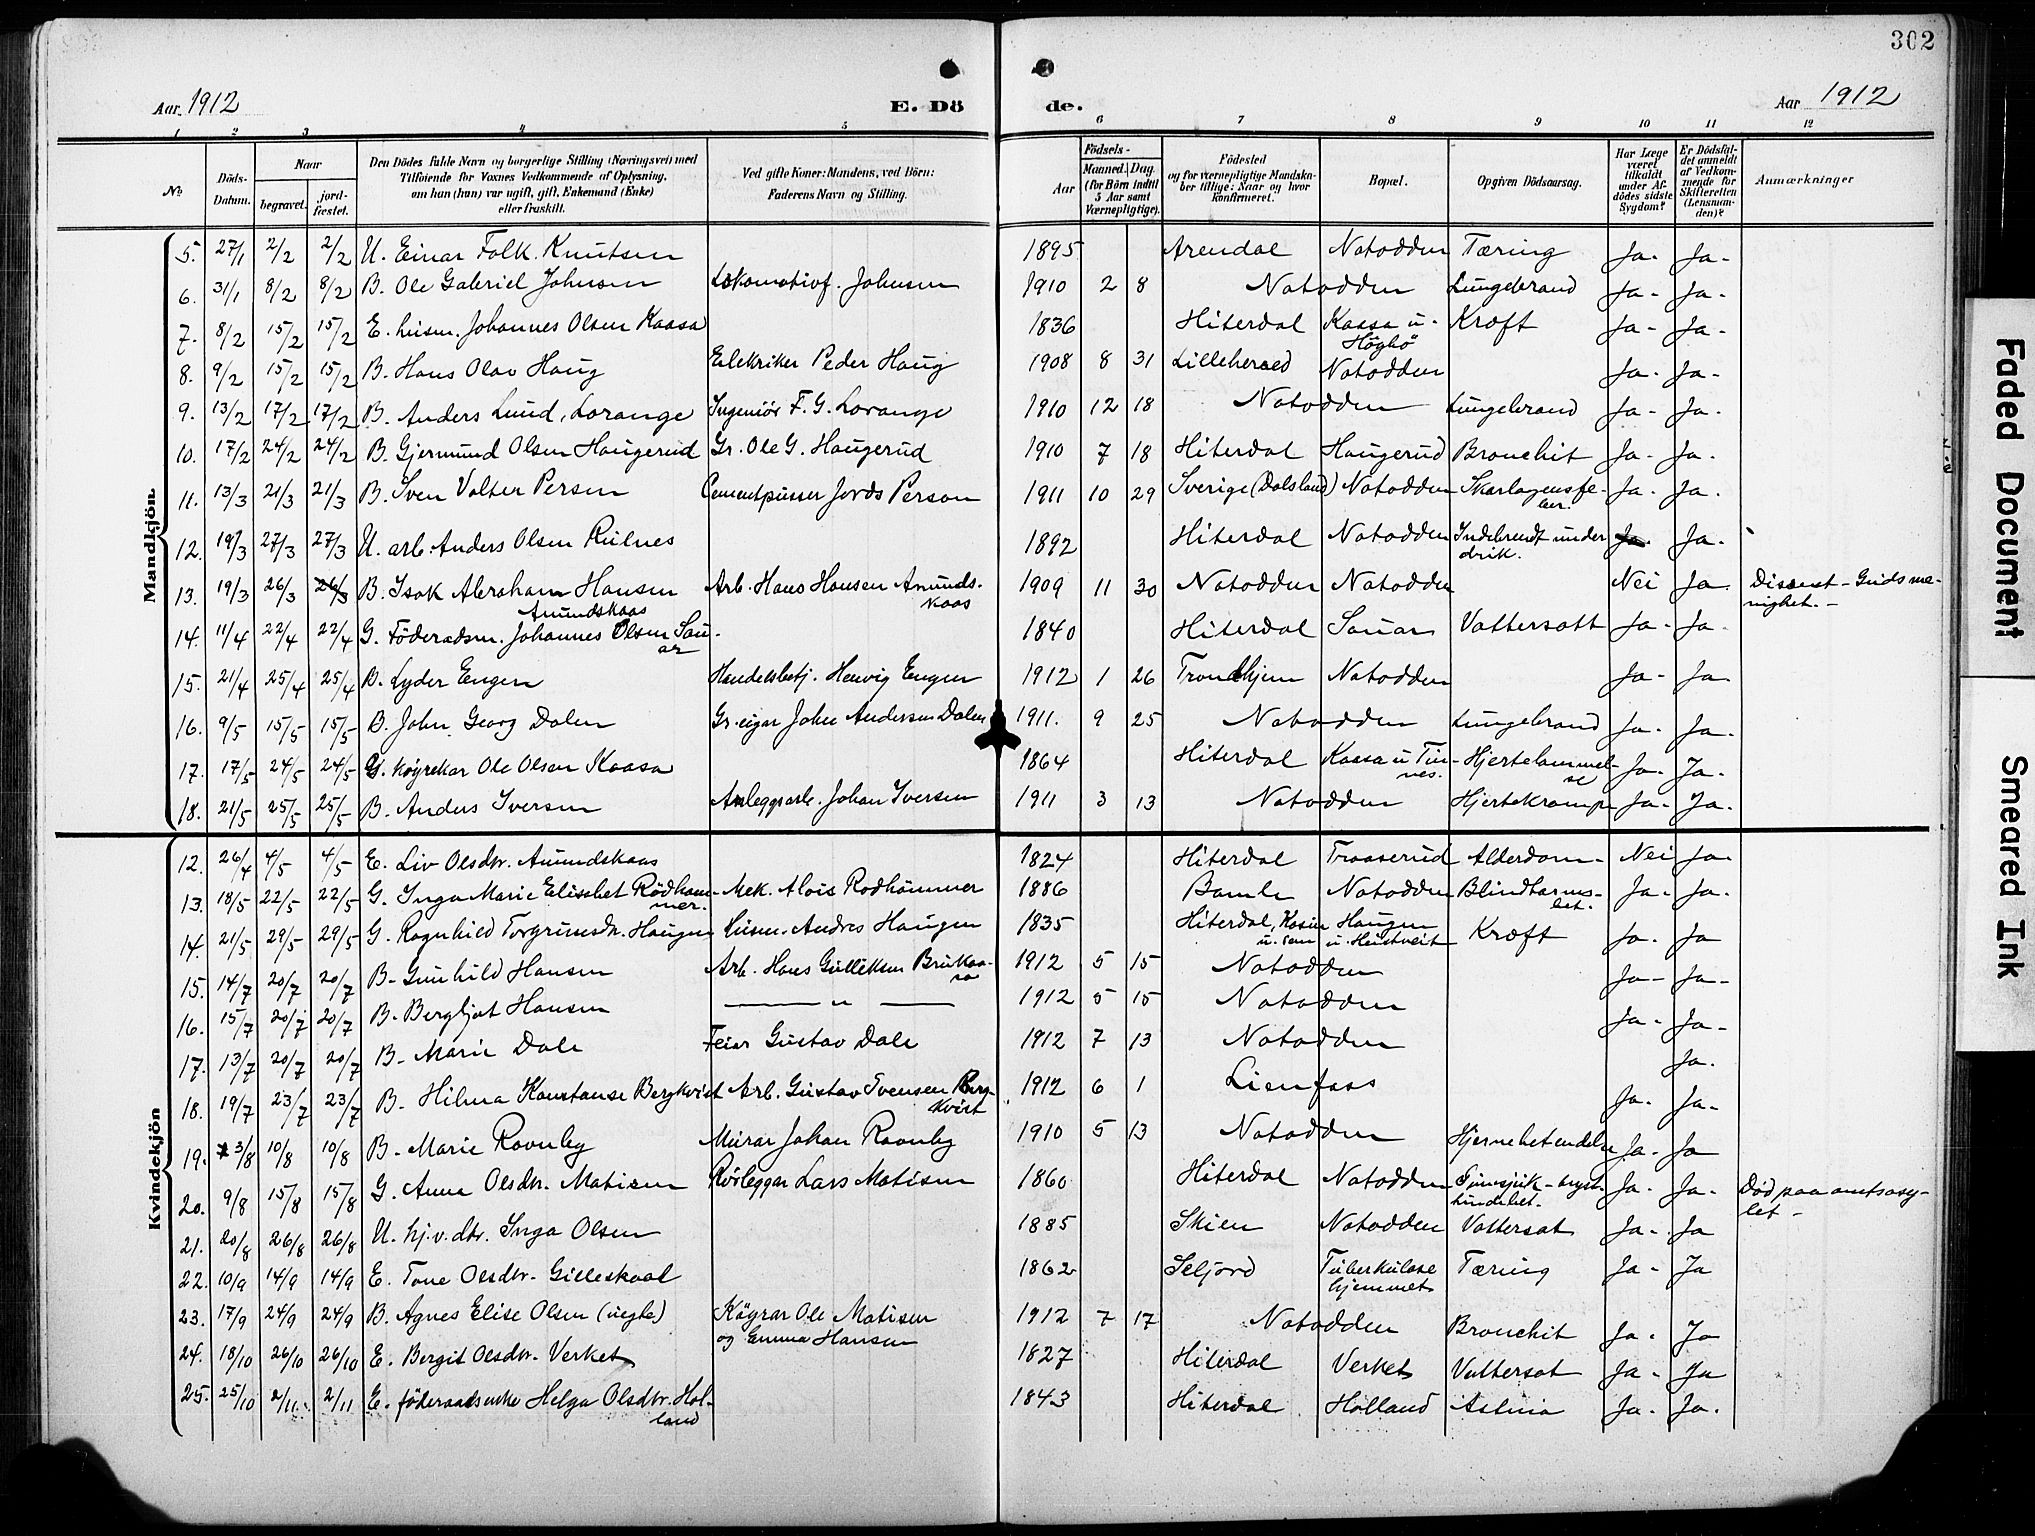 302
Aar 1912 E. Dö de. Aar 1912
1 2 3 4 5 6 7 8 9 10 11 12
No Döds-Datum. Naar begravet. jord-fæstet. Den Dödes fulde Navn og borgerlige Stilling (Næringsvei) med Tilföiende for Voxnes Vedkommende af Oplysning, om han (hun) var ugift, gift, Enkemand (Enke) eller fraskilt. Ved gifte Koner: Mandens, ved Börn: Faderens Navn og Stilling. Födsels- Aar Maaned. Dag. (for Börn indtil 5 Aar samt Værnepligtige). Födested og for værnepligtige Mandskaber tillige: Naar og hvor konfirmeret. Bopæl. Opgiven Dödsaarsag. Har Læge været tilkaldt under Afdödes sidste Sygdom? Er Dödsfaldet anmeldt af Vedkommende for Skifteretten (Lensmanden)? Anmærkninger
Mandkjön
5. 27/1 2/2 2/2 U. Einar Falk Knutsen 1895 Arendal Notodden Tæring Ja- Ja-
6. 31/1 8/2 8/2 B. Ole Gabriel Johnsen Lokomotivf. Johnsen 1910 2 8 Notodden Lungebrand Ja- Ja-
7. 8/2 15/2 15/2 E. husm. Johannes Olsen Kaasa 1836 Hiterdal Kaasa u- Høgbø Kræft Ja- Ja-
8. 9/2 15/2 15/2 B. Hans Olav Haug Eilektriker Peder Haug 1908 8 31 Lilleherred Notodden Ja- Ja-
9. 13/2 17/2 17/2 B. Anders Lund Lorange Ingeniör F. G. Lorange 1910 12 18 Notodden Lungebrand Ja- Ja-
10. 17/2 24/2 24/2 B. Gjermund Olsen Haugerud Gr. Ole G. Haugerud 1910 7 18 Hiterdal Haugerud Bronchit Ja- Ja-
11. 13/3 21/3 21/3 B. Sven Valter Persen Cementpusser Person 1911 10 29 Sverige (Dalsland) Notodden Skarlagensfeber. Ja- Ja-
12. 19/3 27/3 27/3 U. arb. Anders Olsen 1892 Hiterdal Notodden Indebrendt under drik. Ja- Ja-
13. 19/3 26/3 26/3 B. Isak Abraham Hansen Amundskaas Arb. Hans Hansen Amundskaas 1909 11 30 Notodden Notodden Nei Ja Dissent- Guds menighet.-
14. 11/4 22/4 22/4 G. Föderadsm. Johannes Olsen Sauar 1840 Hiterdal Sauar Vattersott Ja- Ja-
15. 21/4 25/4 25/4 B. Lyder Engen Handelsbetj. Henvig Engen 1912 1 26 Trondhjem Notodden Ja- Ja
16. 9/5 15/5 15/5 B. John Georg Dalen Gr. eigar John Andersen Dalen 1911. 9 25 Notodden Lungebrand Ja- Ja-
17. 17/5 24/5 24/5 G. Køyrekar Ole Olsen Kaasa 1864 Hiterdal Kaasa u Tinnes. Hjertelammelse Ja- Ja-
18. 21/5 25/5 25/5 B. Anders Iversen Anleggsarb. Johan Iversen 1911 3 13 Notodden Hjertekrampe Ja- Ja-
Kvindekjön
12. 26/4 4/5 4/5 E. Liv Olsdtr. Amundskaas 1824 Hiterdal Traaserud Alderdom- Nei Ja-
13. 18/5 22/5 22/5 G. Inga Marie Elisabet Rödhammer. Mek. Alois Rodhammer 1886 Bamle Notodden Blindtarmsbet. Ja- Ja-
14. 21/5 29/5 29/5 G. Ragnhild Torgrimsdtr. Haugen Husm. Andres Haugen 1835 Hiterdal, Haugen u. Heistveit Kræft Ja- Ja
15. 14/7 20/7 20/7 B- Gunhild Hansen Arb. Hans Gulliksen Brukaasa 1912 5 15 Notodden Ja- Ja-
16. 15/7 20/7 20/7 B. Bergljot Hansen — " — 1912 5 15 Notodden Ja- Ja-
17. 13/7 20/7 20/7 B- Marie Dale Feiar Gustav Dale 1912 7 13 Notodden Ja.
18. 19/7 23/7 23/7 B- Hilma Konstanse Bergkvist Arb. Gustav Svensen Bergkvist 1912 6 1 Lienfoss Ja- Ja-
19. 3/8 10/8 10/8 B- Marie Ravnby Murar Johan Ravnby 1910 5 13 Notodden Hjernebetendelse Ja- Ja
20. 9/8 15/8 15/8 G. Anna Olsdtr. Matisen Rörleggar Lars Matisen 1860 Hiterdal Notodden Sinnsjuk- Ja- Ja- Död paa amtsasylet-
21. 20/8 26/8 26/8 U. hj.v. dtr. Inga Olsen 1885 Skien Notodden Vattersot Ja- Ja
22. 10/9 14/9 14/9 E. Tone Olsdtr. Gilleskaal 1862 Seljord Tuberkulosehjemmet Tæring Ja- Ja
23. 17/9 24/9 24/9 B. Agnes Elise Olsen (uegte) Köyrar Ole Matisen og Emma Hansen 1912 7 17 Notodden Bronchit Ja- Ja
24. 18/10 26/10 26/10 E. Bergit Olsdtr. Verket 1827 Hiterdal Verket Vattersot Ja- Ja
25. 25/10 2/11 2/11 E. föderaadsenke Helga Olsdtr. Holland 1843 Hiterdal Holland Astma Ja- Ja.
Faded Document
Smeared Ink